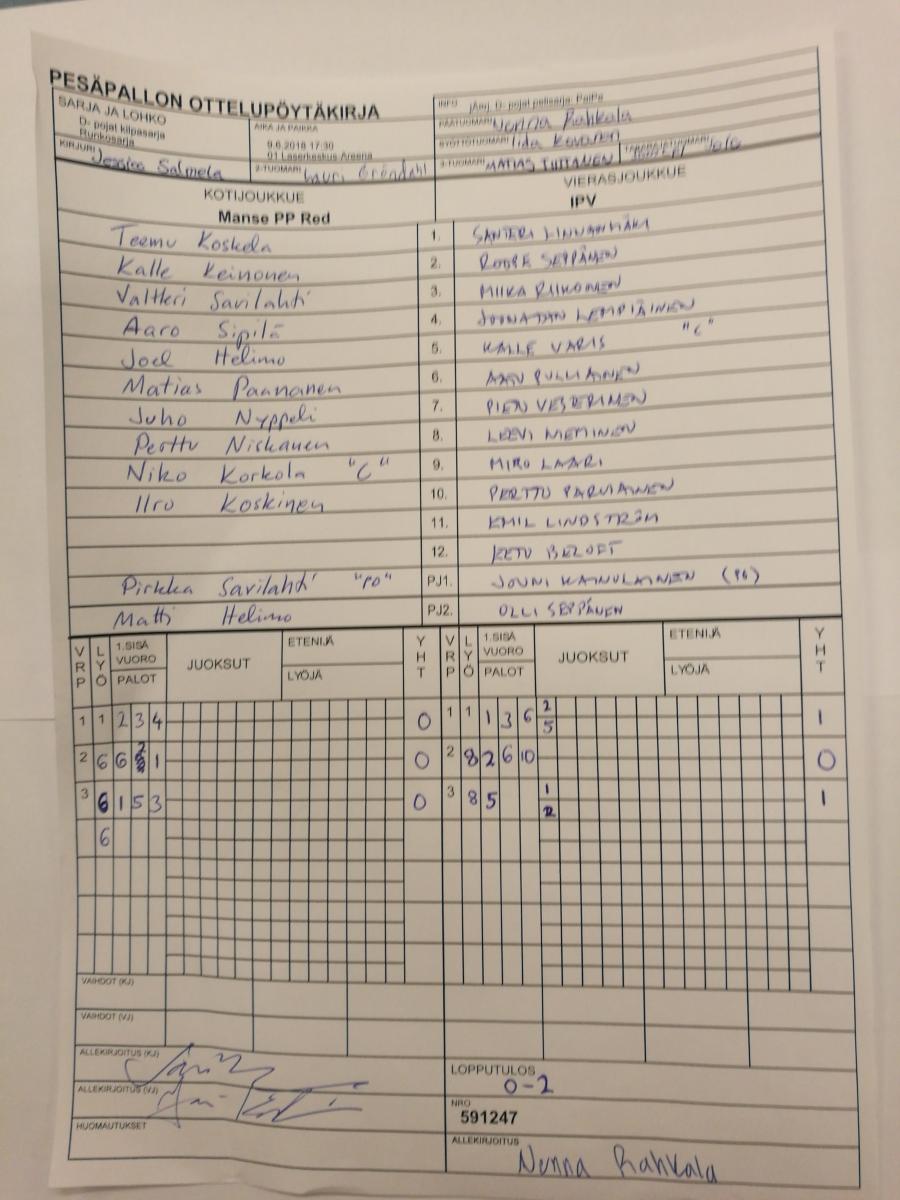 PESÄPALLON OTTELUPÖYTÄKIRJA
SARJA JA LOHKO
D- pojat kilpasarja
Runkosarja
AIKA JA PAIKKA
9.6.2018 17:30
01 Laserkeskus Areena
INFO jAmj, D- pojat pelisarja, PaiPa
PÄÄTUOMARI Nenna Rahkala
SYÖTTÖTUOMARI Iida Kovanen
KIRJURI Jessica Salmela
2-TUOMARI Lauri Gröndahl
3-TUOMARI MATIAS TIITANEN
TAKARAJATUOMARI
KOTIJOUKKUE
Manse PP Red
VIERASJOUKKUE
IPV
Teemu Koskela 1. SANTERI LINNANMÄKI
Kalle Keinonen 2. ROOPE SEPPÄNEN
Valtteri Savilahti 3. MIIKA RÄIKÖNEN
Aaro Sipilä 4. JOONATAN LEMPIÄINEN
Joel Helimo 5. KALLE VARIS "C"
Matias Paananen 6. AATU PULLIAINEN
Juho Nyppeli 7. VESTERINEN
Perttu Niskanen 8. LEEVI NIEMINEN
Niko Korkola "C" 9. MIRO LAARI
Ilro Koskinen 10. PERTTU PARVIAINEN
11. EMIL LINDSTRÖM
12. EETU
Pirkka Savilahti "PO" PJ1. JOUNI KAINULAINEN
Matti Helimo PJ2. OLLI SEPPÄNEN
VRP LYÖ 1.SISÄ VUORO PALOT JUOKSUT ETENIJÄ LYÖJÄ YHT VRP LYÖ 1.SISÄ VUORO PALOT JUOKSUT ETENIJÄ LYÖJÄ YHT
1 1 2 3 4 0 1 1 1 3 6 2 5 1
2 6 6 2 1 0 2 8 2 6 10 0
3 6 1 5 3 0 3 8 5 1 2 1
6
VAIHDOT (KJ)
VAIHDOT (VJ)
ALLEKIRJOITUS (KJ)
ALLEKIRJOITUS (VJ)
HUOMAUTUKSET
LOPPUTULOS
0-2
NRO
591247
ALLEKIRJOITUS
Nenna Rahkala